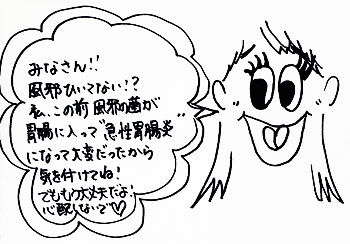 みなさん!!
風邪ひいてない!?
私、この前風邪の菌が
胃腸に入って“急性胃腸炎”
になって大変だったから
気を付けてね!
でももう大丈夫だよ!
心配しないで♡